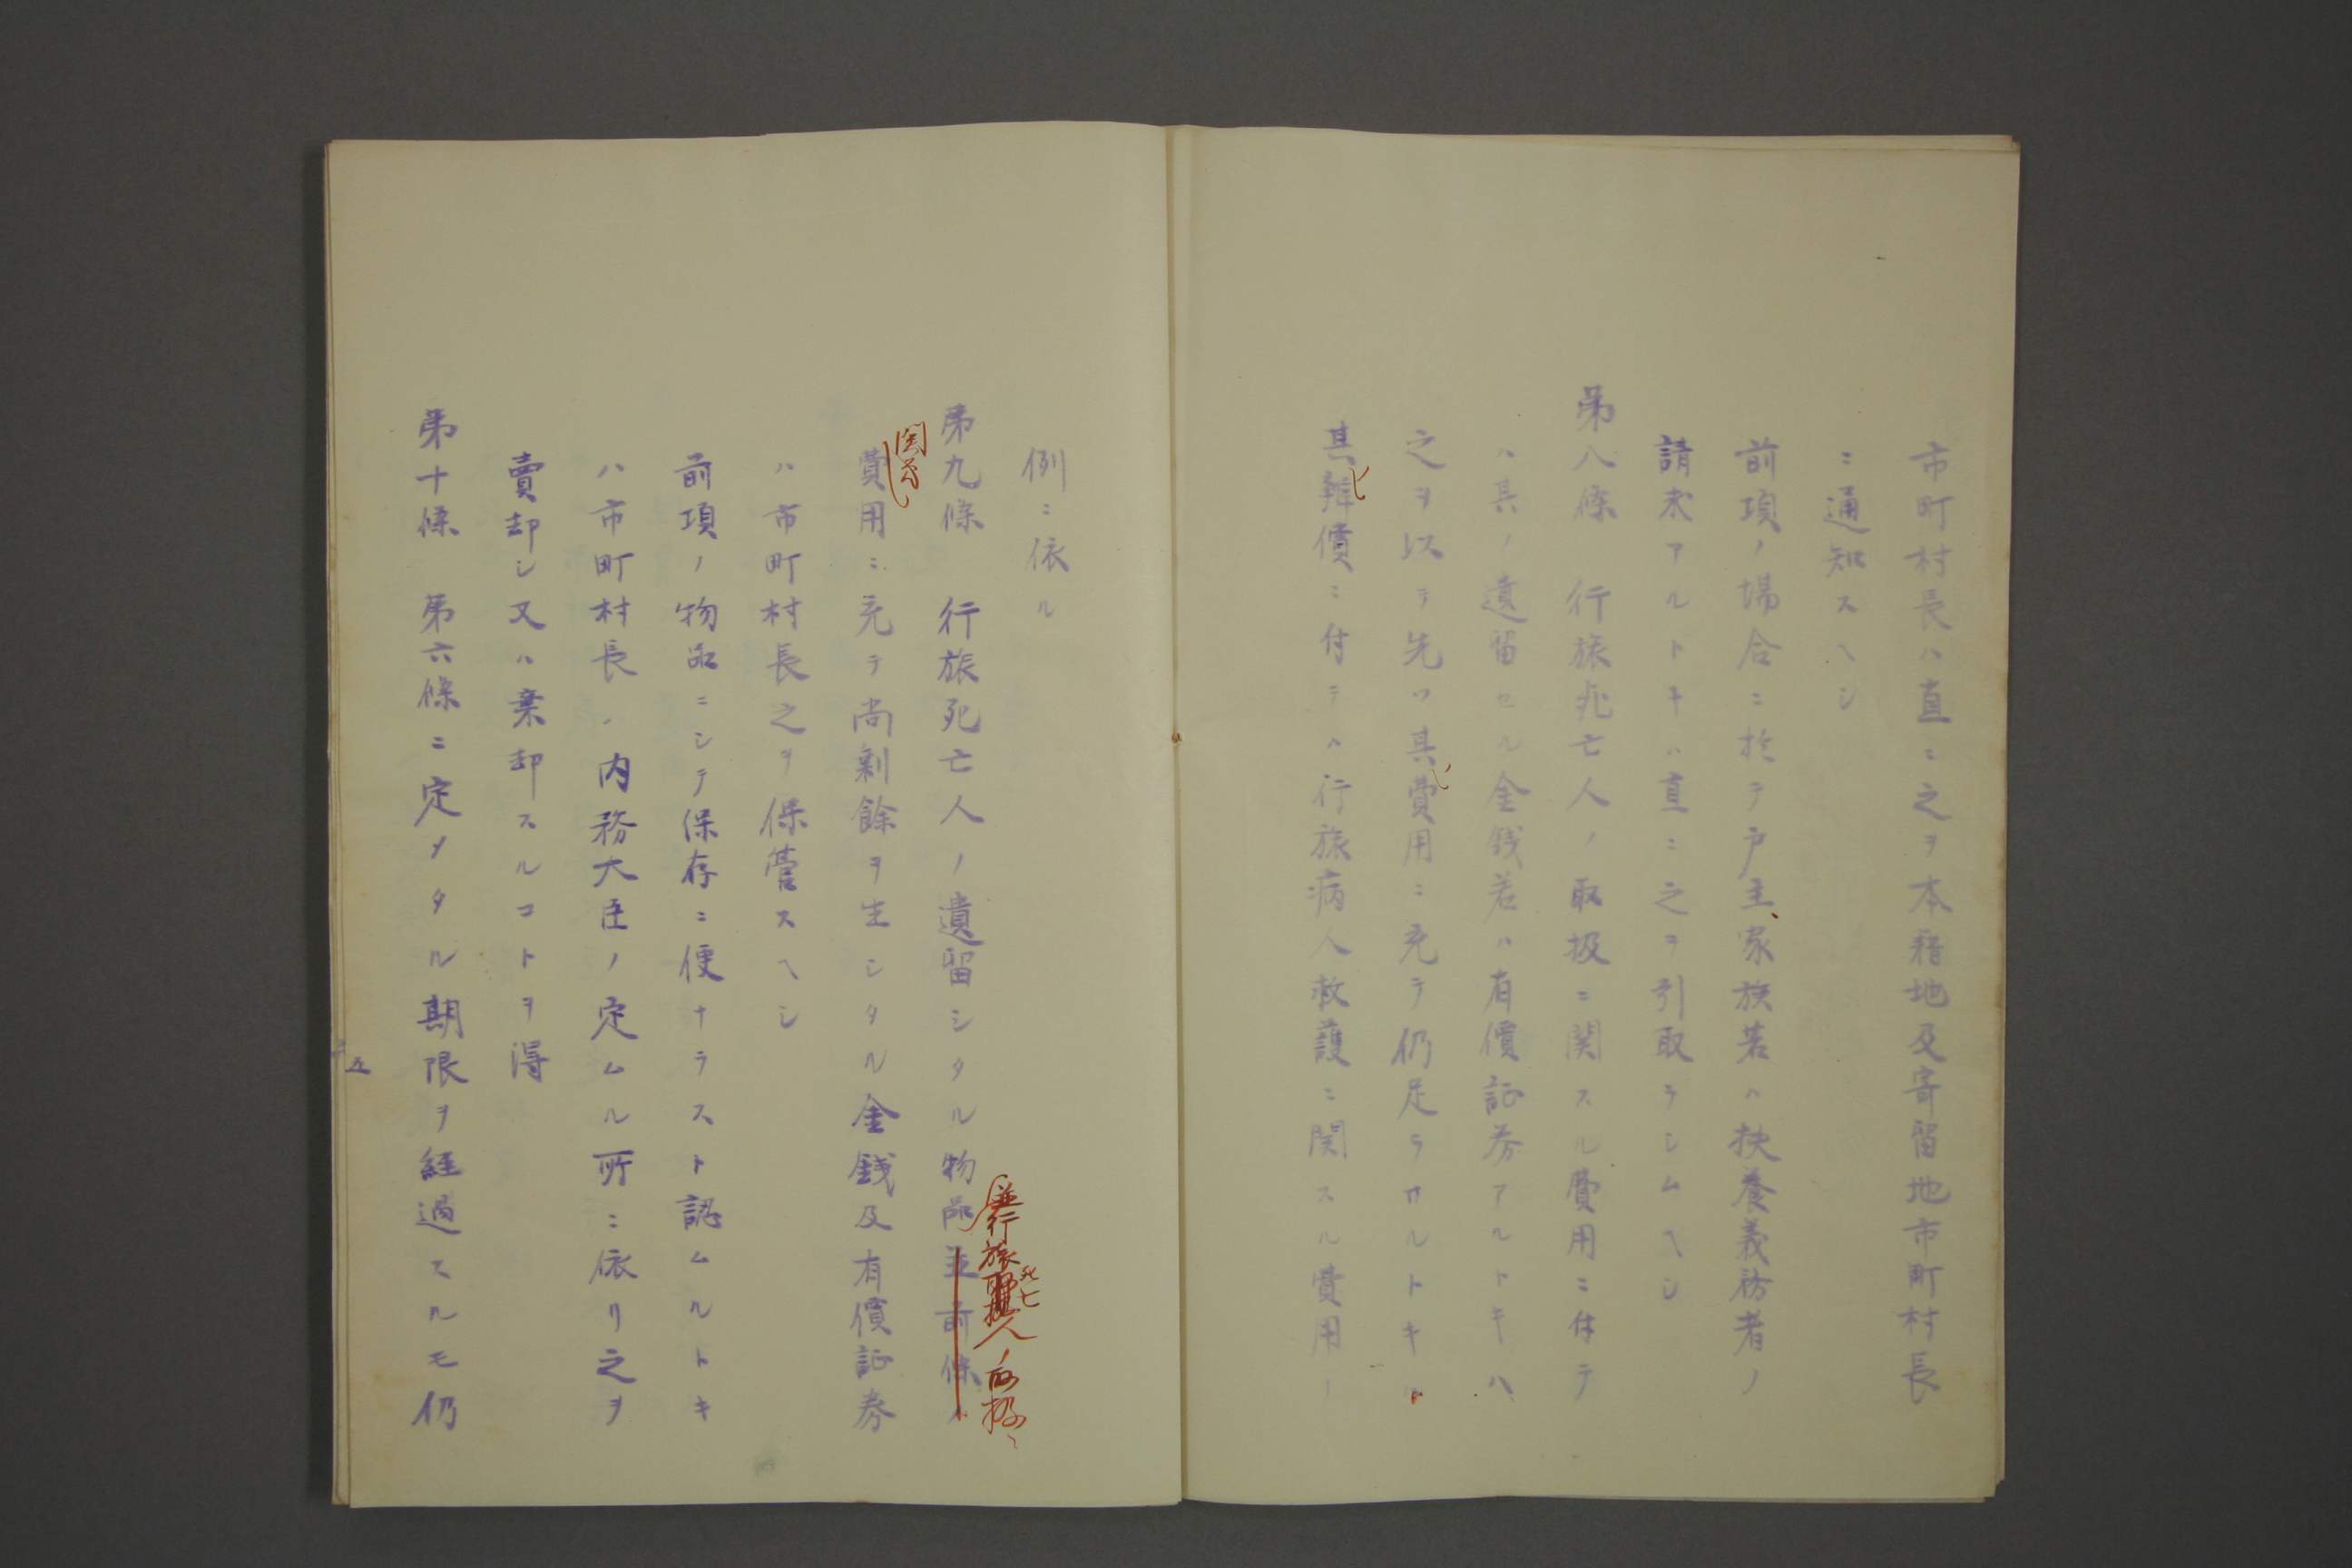 市町村長ハ直ニ之ヲ本籍地及寄留地市町村長
ニ通知スヘシ
前項ノ場合ニ於テ戸主、家族若ハ扶養義務者ノ
請求アルトキハ直ニ之ヲ引取ラシムヘシ
第八條 行旅死亡人ノ取扱ニ関スル費用ニ付テ
ハ其ノ遺留セル金銭若ハ有價証券アルトキハ
之ヲ以テ先ツ其費用ニ充テ仍足ラサルトキハ
其辨償ニ付テハ行旅病人救護ニ関スル費用ノ
例ニ依ル
並行旅死亡人ノ取扱ニ
第九條 行旅死亡人ノ遺留シタル物品並前條ノ
関スル
費用ニ充テ尚剰餘ヲ生シタル金銭及有價証券
ハ市町村長之ヲ保管スヘシ
前項ノ物品ニシテ保存ニ便ナラスト認ムルトキ
ハ市町村長ハ内務大臣ノ定ムル所ニ依リ之ヲ
賣却シ又ハ棄却スルコトヲ得
第十條 第六條ニ定メタル期限ヲ経過スルモ仍
五